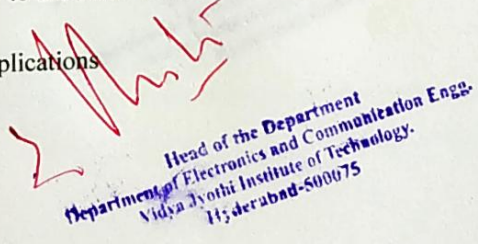 plications
Head of the Department
Department of Electronics and Communication Engg.
Vidya Jyothi Institute of Technology.
Hyderabad-500075